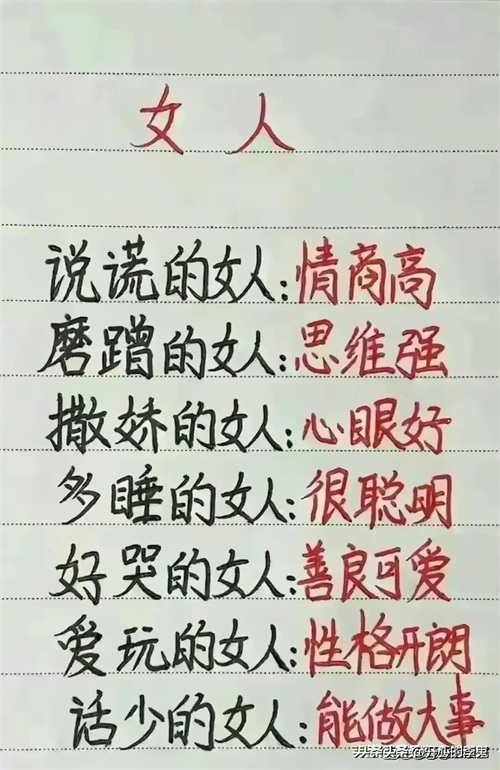 女人
说谎的女人:情商高
磨蹭的女人:思维强
撒娇的女人:心眼好
多睡的女人:很聪明
好哭的女人:善良可爱
爱玩的女人:性格开朗
话少的女人:能做大事